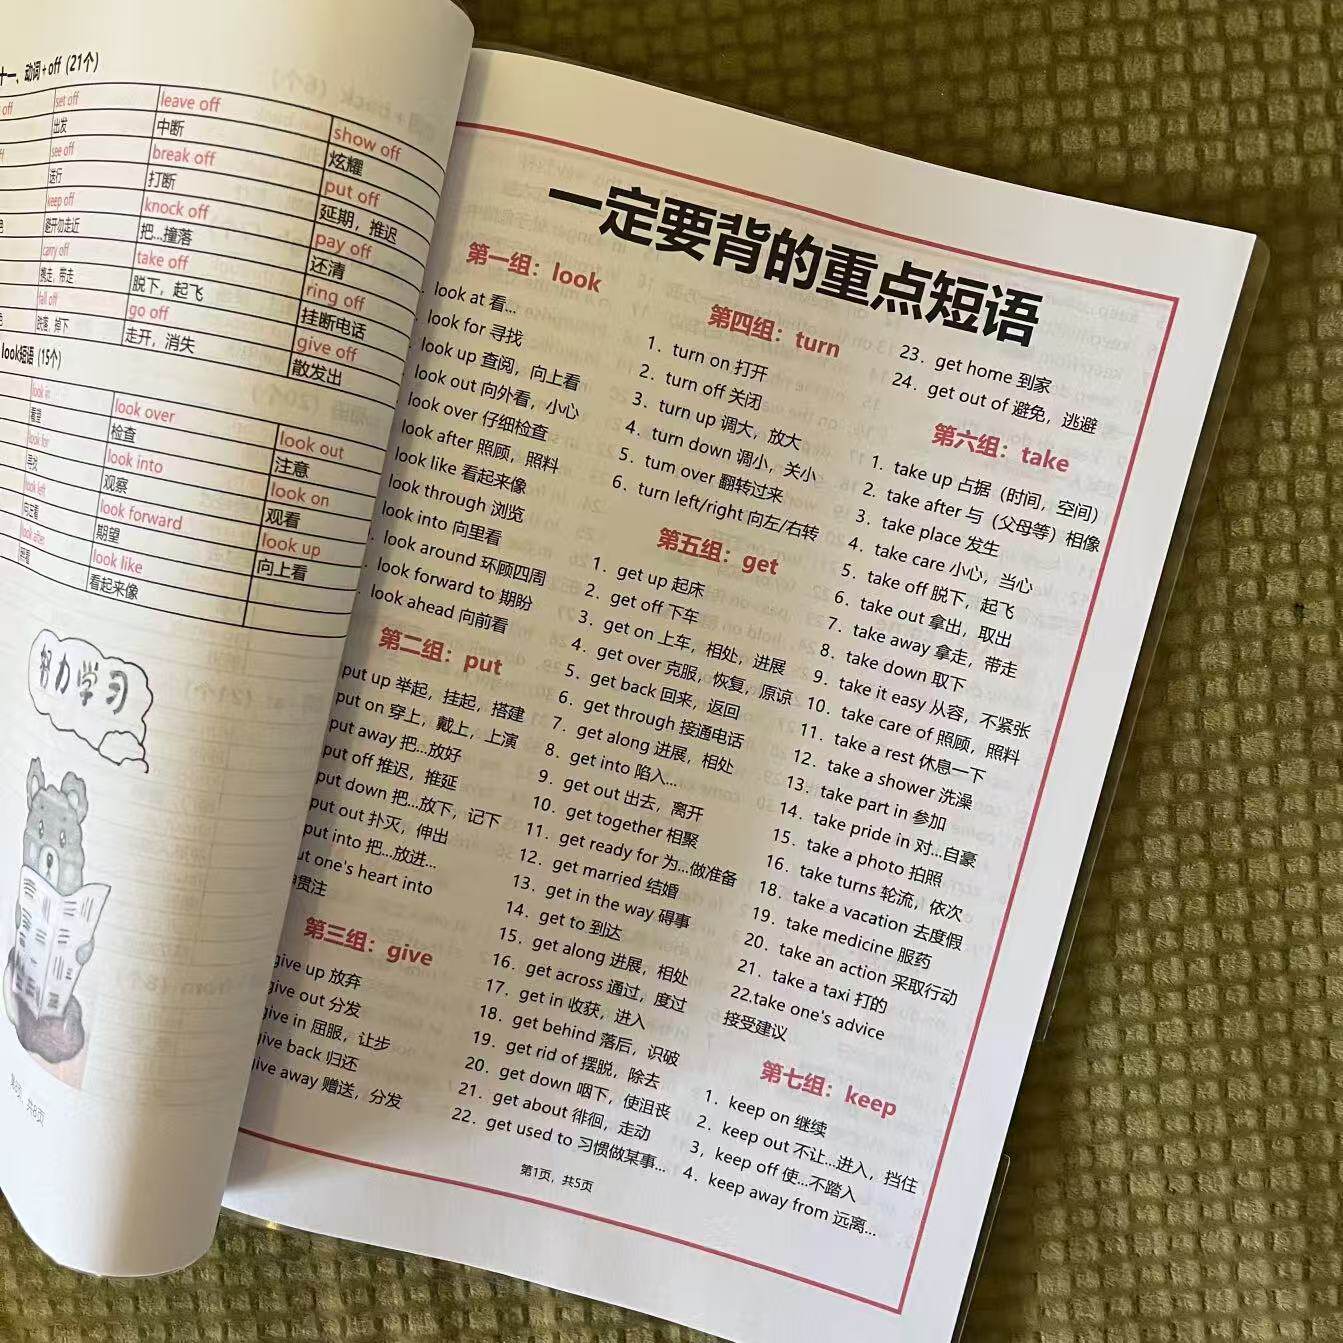 十一、动词+off（21个）
off set off leave off show off
出发 中断 炫耀
see off break off put off
送行 打断 延期，推迟
keep off knock off pay off
避开勿走近 把...撞落 还清
carry off take off ring off
挑走，带走 脱下，起飞 挂断电话
fall off go off give off
跌落，掉下 走开，消失 散发出
look短语（15个）
look in look over look out
看望 检查 注意
look for look into look on
寻找 观察 观看
look left look forward look up
向左看 期望 向上看
look after look like
照看 看起来像
努力学习
第8页，共8页
一定要背的重点短语
第一组：look
look at 看...
look for 寻找
look up 查阅，向上看
look out 向外看，小心
look over 仔细检查
look after 照顾，照料
look like 看起来像
look through 浏览
look into 向里看
look around 环顾四周
look forward to 期盼
look ahead 向前看
第二组：put
put up 举起，挂起，搭建
put on 穿上，戴上，上演
put away 把...放好
put off 推迟，推延
put down 把...放下，记下
put out 扑灭，伸出
put into 把...放进...
ut one's heart into
贯注
第三组：give
give up 放弃
give out 分发
give in 屈服，让步
give back 归还
give away 赠送，分发
第四组：turn
1．turn on 打开
2．turn off 关闭
3．turn up 调大，放大
4．turn down 调小，关小
5．tum over 翻转过来
6．turn left/right 向左/右转
第五组：get
1．get up 起床
2．get off 下车
3．get on 上车，相处，进展
4．get over 克服，恢复，原谅
5．get back 回来，返回
6．get through 接通电话
7．get along 进展，相处
8．get into 陷入...
9．get out 出去，离开
10．get together 相聚
11．get ready for 为...做准备
12．get married 结婚
13．get in the way 碍事
14．get to 到达
15．get along 进展，相处
16．get across 通过，度过
17．get in 收获，进入
18．get behind 落后，识破
19．get rid of 摆脱，除去
20．get down 咽下，使沮丧
21．get about 徘徊，走动
22．get used to 习惯做某事...
23．get home 到家
24．get out of 避免，逃避
第六组：take
1．take up 占据（时间，空间）
2．take after 与（父母等）相像
3．take place 发生
4．take care 小心，当心
5．take off 脱下，起飞
6．take out 拿出，取出
7．take away 拿走，带走
8．take down 取下
9．take it easy 从容，不紧张
10．take care of 照顾，照料
11．take a rest 休息一下
12．take a shower 洗澡
13．take part in 参加
14．take pride in 对...自豪
15．take a photo 拍照
16．take turns 轮流，依次
18．take a vacation 去度假
19．take medicine 服药
20．take an action 采取行动
21．take a taxi 打的
22.take one's advice
接受建议
第七组：keep
1．keep on 继续
2．keep out 不让...进入，挡住
3，keep off 使...不踏入
4．keep away from 远离...
第1页，共5页